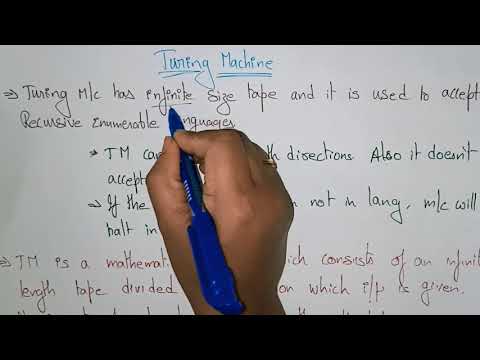 Turing Machine
⇒ Turing M/c has infinite size tape and it is used to accept
Recursive Enumerable languages
→ TM can directions. Also it doesn't
accept
→ If the not in lang, m/c will
halt in
⇒ TM is a mathemat which consists of an infinit
length tape divided on which i/p is given.